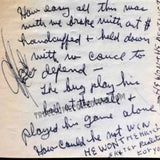 How easy all this was
with me broke with out $
handcuffed & held down
with no cance to
defend —
The bug play his
ball at the wall &
played his game alone
How could he not WIN
HE WON